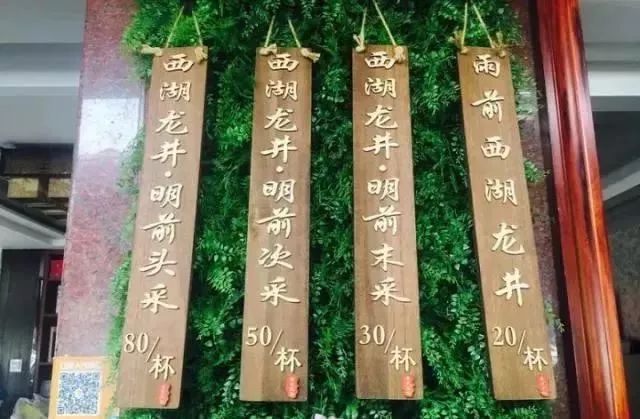 西湖龙井·明前头采
80/杯
西湖龙井·明前次采
50/杯
西湖龙井·明前末采
30/杯
雨前西湖龙井
20/杯